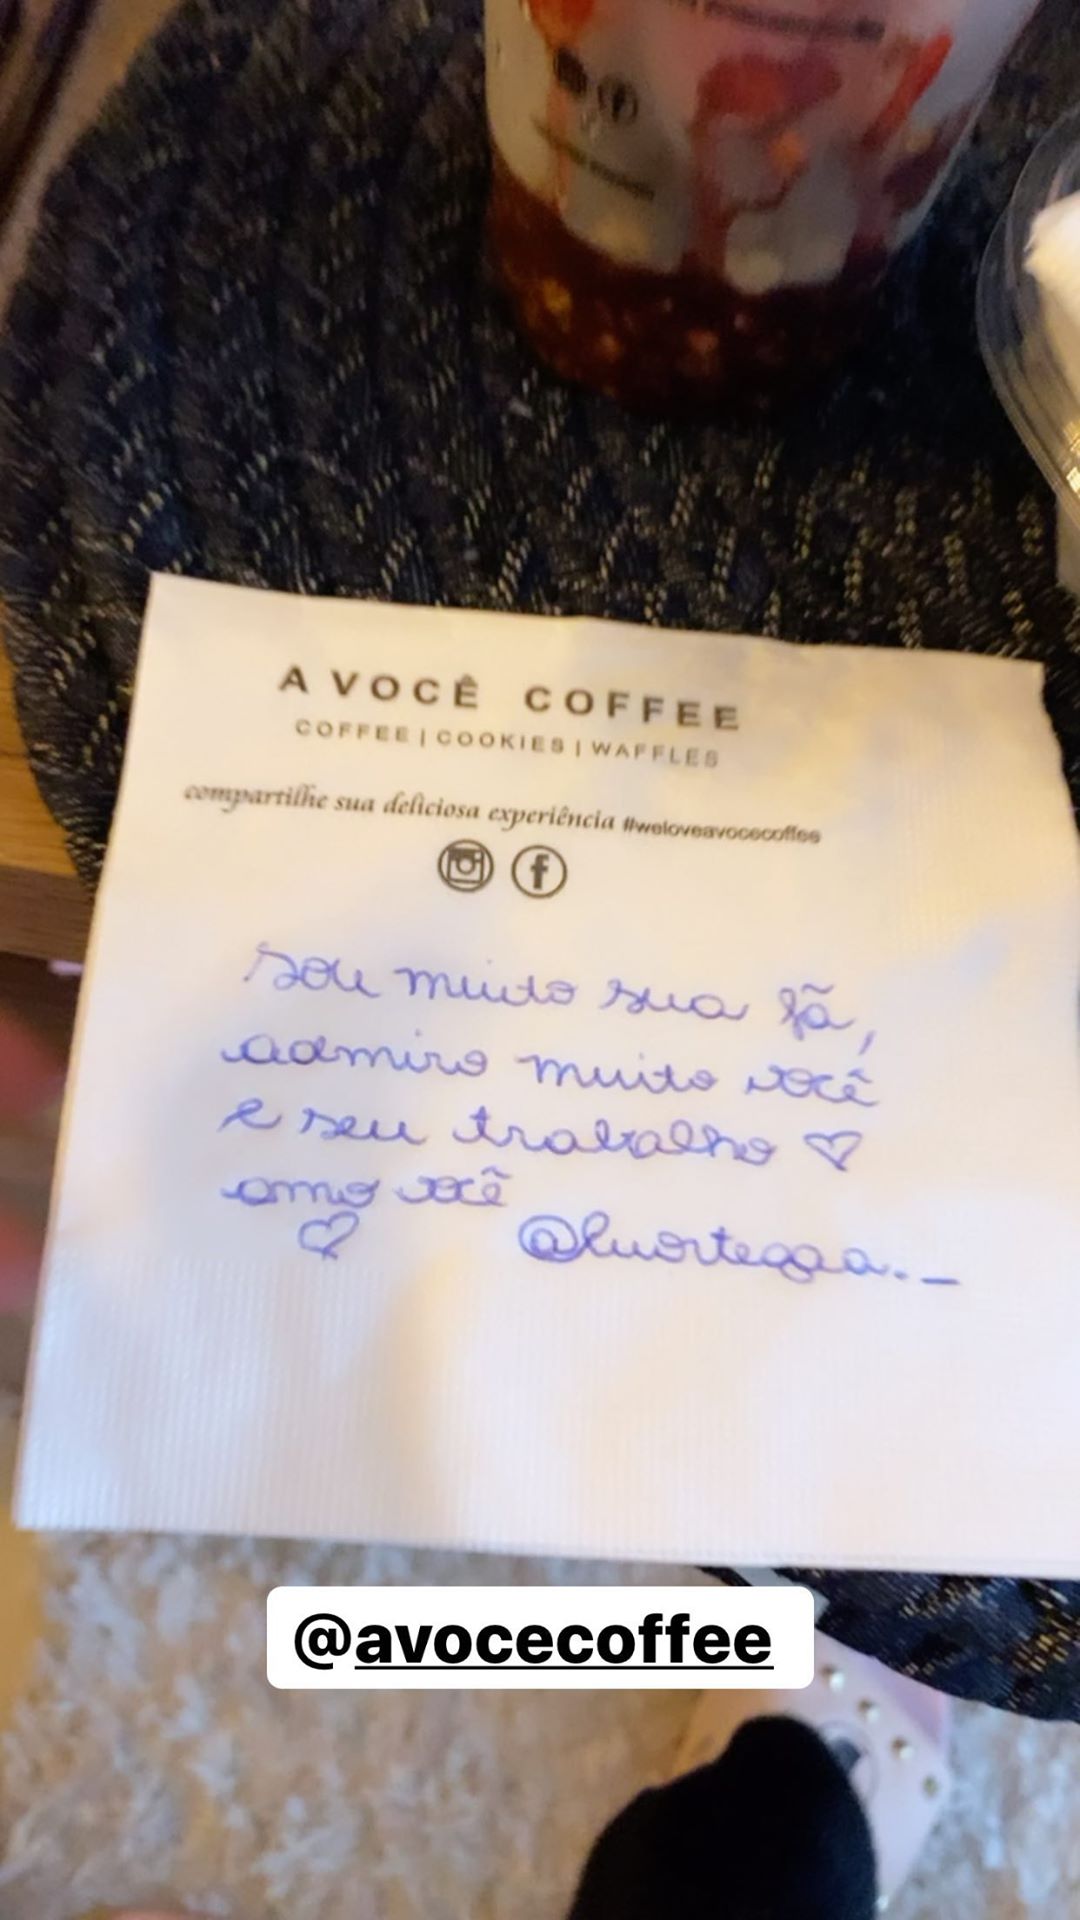 A VOCÊ COFFEE
COFFEE | COOKIES | WAFFLES
compartilhe sua deliciosa experiência #weloveavocecoffee
sou muito sua fã,
admiro muito você
e seu trabalho ♡
amo você
♡ @luortegaa._
@avocecoffee